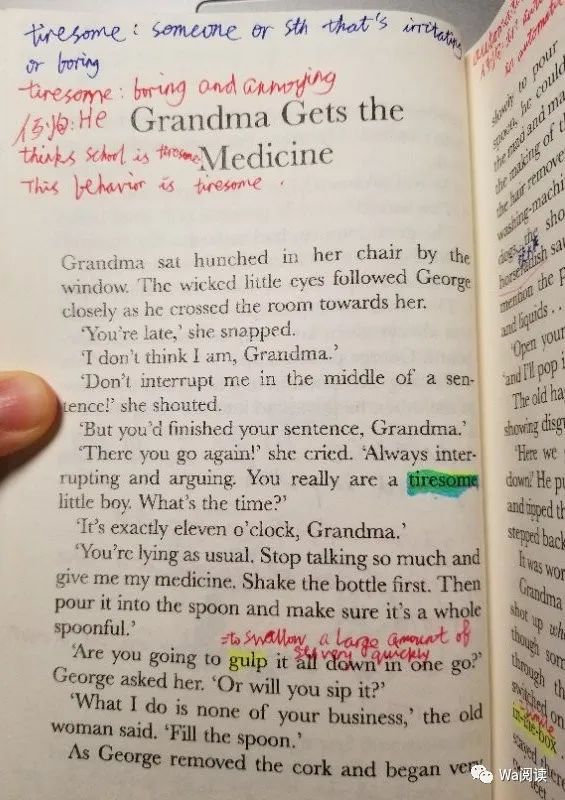 tiresome: someone or sth that's irritating
or boring
tiresome: boring and annoying
He
thinks school is tiresome
This behavior is tiresome.
Grandma Gets the
Medicine
Grandma sat hunched in her chair by the
window. The wicked little eyes followed George
closely as he crossed the room towards her.
'You're late,' she snapped.
'I don't think I am, Grandma.'
'Don't interrupt me in the middle of a sen-
tence!' she shouted.
'But you'd finished your sentence, Grandma.'
'There you go again!' she cried. 'Always inter-
rupting and arguing. You really are a tiresome
little boy. What's the time?'
'It's exactly eleven o'clock, Grandma.'
'You're lying as usual. Stop talking so much and
give me my medicine. Shake the bottle first. Then
pour it into the spoon and make sure it's a whole
spoonful.'
=to swallow a large amount of
very quickly
'Are you going to gulp it all down in one go?'
George asked her. 'Or will you sip it?'
'What I do is none of your business,' the old
woman said. 'Fill the spoon.'
As George removed the cork and began very
slowly to pour
spoon, he could
the mad and ma
the making of th
the hair remover
washing-machin
dogs, the sho
horseradish sau
mention the p
and liquids . .
'Open your
'and I'll pop i
The old ha
showing disgu
'Here we
down!' He pu
and tipped th
stepped back
It was wor
Grandma
shot up wh
though som
through th
switched on
in-the-box
stayed there
Wa阅读